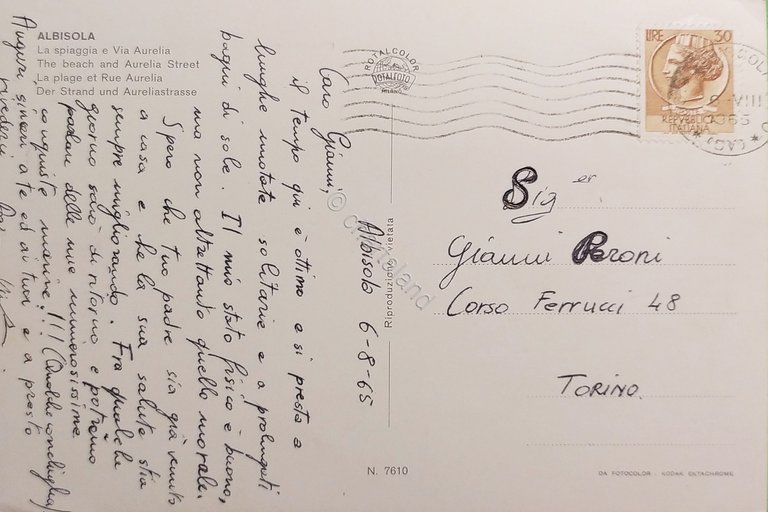 ALBISOLA
La spiaggia e Via Aurelia
The beach and Aurelia Street
La plage et Rue Aurelia
Der Strand und Aureliastrasse
Albisola 6-8-65
Caro Gianni,
il tempo qui è ottimo e si presta a
lunghe nuotate solitarie e a prolungati
bagni di sole. Il mio stato fisico è buono,
ma non altrettanto quello morale.
Spero che tuo padre sia già venuto
a casa e che la sua salute stia
sempre migliorando. Fra qualche
giorno sarò di ritorno e potremo
parlare delle mie numerosissime
conquiste marine!! !!! (Qualche conchiglia)
Auguri sinceri a te ed ai tuoi e a presto
rivederci
ROTALCOLOR
ROTALFOTO
MILANO
Riproduzione vietata
N. 7610
LIRE 30
REPUBBLICA
ITALIANA
VIII
1965
Sig er
Gianni Peroni
Corso Ferrucci 48
TORINO.
DA FOTOCOLOR - KODAK EKTACHROME
© artisland